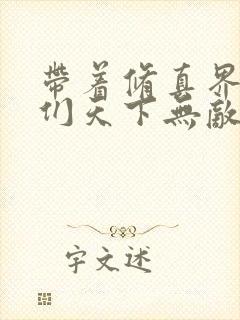 帶着修真界
们天下無敵
宇文述